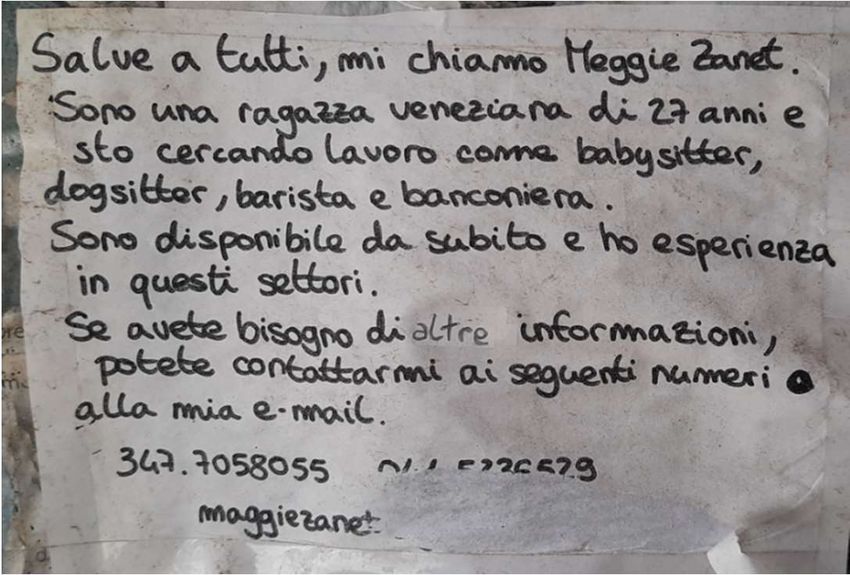 Salve a tutti, mi chiamo Meggie Zanet.
Sono una ragazza veneziana di 27 anni e
sto cercando lavoro come babysitter,
dogsitter, barista e banconiera.
Sono disponibile da subito e ho esperienza
in questi settori.
Se avete bisogno di altre informazioni,
potete contattarmi ai seguenti numeri o
alla mia e-mail.
347.7058055
maggiezanet